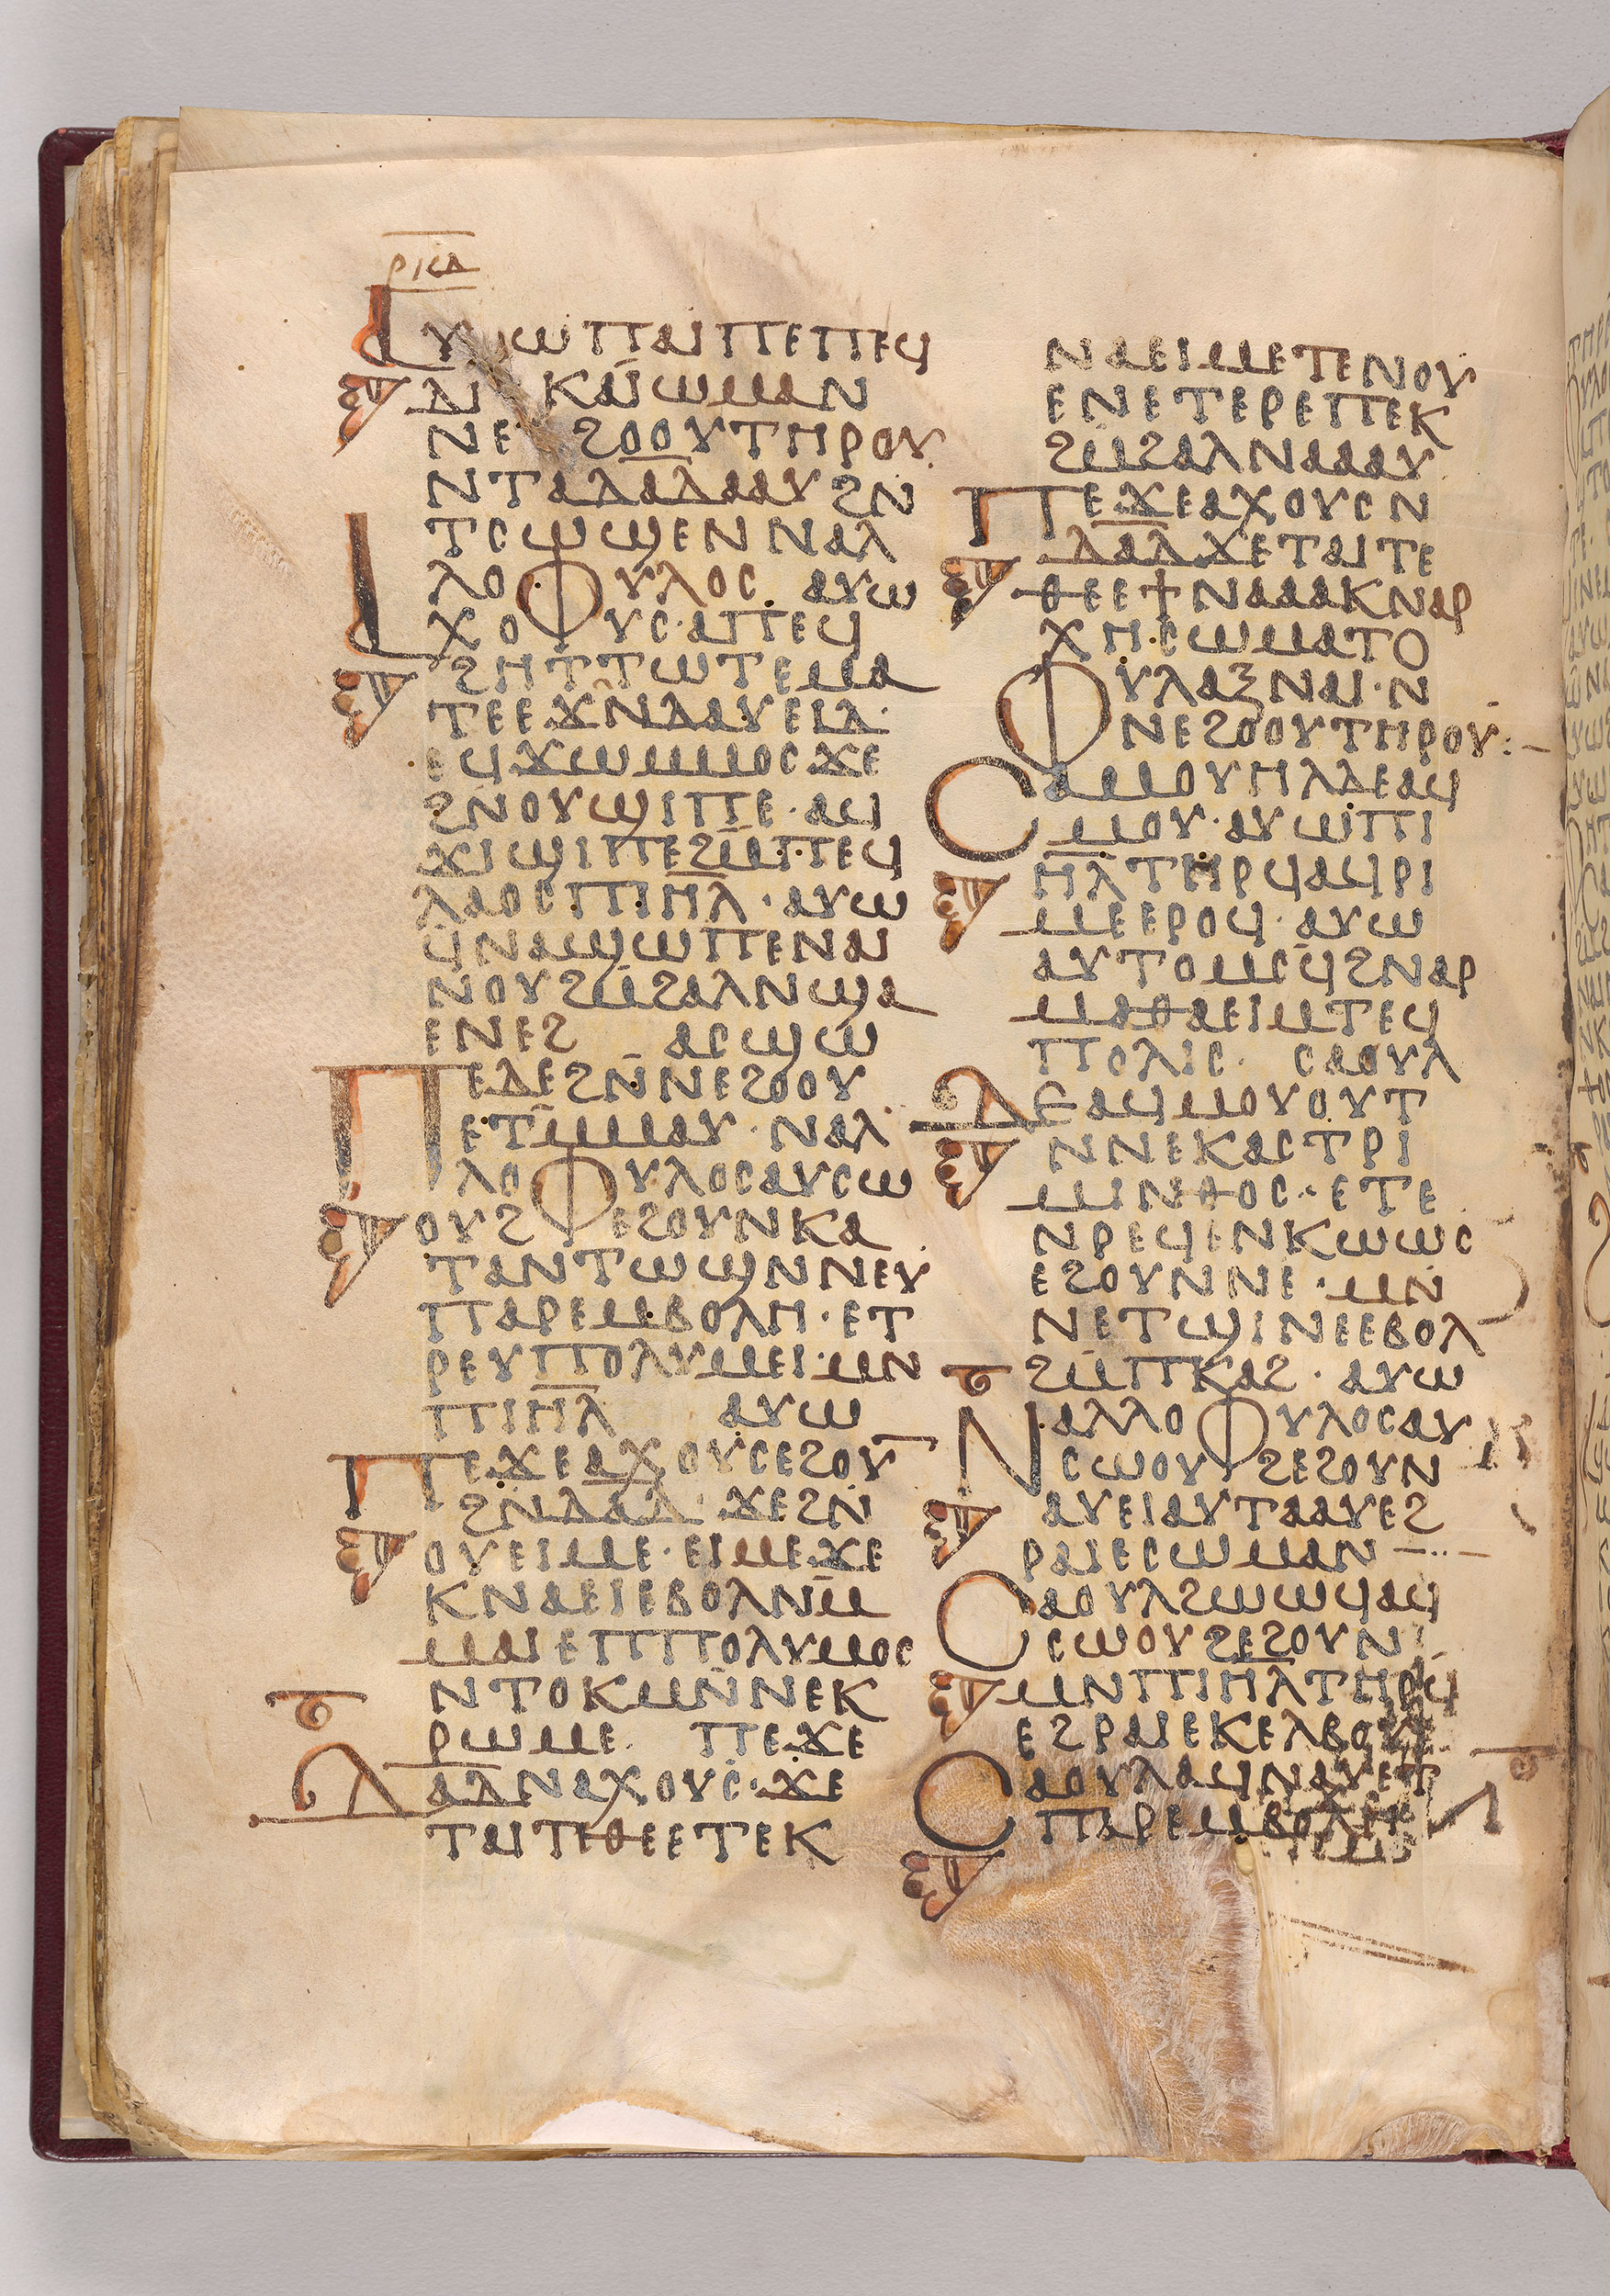 ⲣⲕⲇ
ⲁⲩⲱ ⲡⲁⲓ ⲡⲉ ⲡⲉϥ
ⲇⲓⲕⲁⲓⲱⲙⲁ ⲛ
ⲛⲉϩⲟⲟⲩ ⲧⲏⲣⲟⲩ
ⲛⲧⲁⲇⲁ̅ⲇ̅ ⲁⲁⲩ ϩⲛ
ⲧⲥⲱϣⲉ ⲛⲛⲁⲗ
ⲗⲟⲫⲩⲗⲟⲥ. ⲁⲩⲱ
ⲁⲭⲟⲩⲥ· ⲁⲡⲉϥ
ϩⲏⲧ ⲧⲱⲧ ⲉⲙⲁ
ⲧⲉ ⲉϫⲛ ⲇⲁⲩⲉⲓⲇ·
ⲉϥϫⲱ ⲙⲙⲟⲥ ϫⲉ
ϩⲛ ⲟⲩϣⲓⲡⲉ· ⲁϥ
ϫⲓϣⲓⲡⲉ ϩⲙ ⲡⲉϥ
ⲗⲁⲟⲥ ⲡⲓⲏ̅ⲗ̅· ⲁⲩⲱ
ϥⲛⲁϣⲱⲡⲉ ⲛⲁⲓ
ⲛⲟⲩϩⲙϩⲁⲗ ⲛϣⲁ
ⲉⲛⲉϩ ⲁⲥϣⲱ
ⲡⲉ ⲇⲉ ϩⲛ ⲛⲉϩⲟⲟⲩ
ⲉⲧⲙⲙⲁⲩ· ⲛⲁⲗ
ⲗⲟⲫⲩⲗⲟⲥ ⲁⲩⲥⲱ
ⲟⲩϩ ⲉϩⲟⲩⲛ ⲕⲁ
ⲧⲁ ⲛⲧⲱϣ ⲛⲛⲉⲩ
ⲡⲁⲣⲉⲙⲃⲟⲗⲏ· ⲉⲧ
ⲣⲉⲩⲡⲟⲗⲩⲙⲉⲓ· ⲙⲛ
ⲡⲓⲏ̅ⲗ̅ ⲁⲩⲱ
ⲡⲉϫⲉ ⲁⲭⲟⲩⲥ ⲉϩⲟⲩ
ϩⲛ ⲇⲁ̅ⲇ̅· ϫⲉ ϩⲛ
ⲟⲩⲉⲓⲙⲉ· ⲉⲓⲙⲉ ϫⲉ
ⲕⲛⲁⲉⲓ ⲉⲃⲟⲗ ⲛⲙ
ⲙⲁⲓ ⲉⲡⲡⲟⲗⲩⲙⲟⲥ
ⲛⲧⲟⲕ ⲙⲛ ⲛⲉⲕ
ⲣⲱⲙⲉ. ⲡⲉϫⲉ
ⲇⲁ̅ⲇ̅ ⲛⲁⲭⲟⲩⲥ· ϫⲉ
ⲧⲁⲓ ⲧⲉ ⲑⲉ ⲉⲧⲉⲕ
ⲛⲁⲉⲓⲙⲉ ⲧⲉⲛⲟⲩ
ⲉⲛⲉⲧⲉⲣⲉ ⲡⲉⲕ
ϩⲙϩⲁⲗ ⲛⲁⲁⲁⲩ
ⲡⲉϫⲉ ⲁⲭⲟⲩⲥ ⲛ
ⲇⲁ̅ⲇ̅ ϫⲉ ⲧⲁⲓ ⲧⲉ
ⲑⲉ ⲉϯⲛⲁⲁⲁⲕ ⲛⲁⲣ
ⲭⲏ·ⲥⲱⲙⲁⲧⲟ
ⲫⲩⲗⲁⲝ ⲛⲁⲓ· ⲛ
ⲛⲉϩⲟⲟⲩ ⲧⲏⲣⲟⲩ:–
ⲥⲁⲙⲟⲩⲏⲗ ⲇⲉ ⲁϥ
ⲙⲟⲩ· ⲁⲩⲱ ⲡⲓ
ⲏ̅ⲗ̅ ⲧⲏⲣϥ ⲁϥⲣⲓ
ⲙⲉ ⲉⲣⲟϥ· ⲁⲩⲱ
ⲁⲩⲧⲟⲙⲥϥ ϩⲛ ⲁⲣ
ⲙⲁⲑⲁⲉⲓⲙ ⲧⲉϥ
ⲡⲟⲗⲓⲥ· ⲥⲁⲟⲩⲗ
ⲇⲉ ⲁϥⲙⲟⲩⲟⲩⲧ
ⲛⲛⲉⲕⲁⲥⲧⲣⲓ
ⲙⲓⲛⲑⲟⲥ· ⲉⲧⲉ
ⲛⲣⲉϥⲉⲛⲕⲱⲱⲥ
ⲉϩⲟⲩⲛ ⲛⲉ· ⲙⲛ
ⲛⲉⲧϣⲓⲛⲉ ⲉⲃⲟⲗ
ϩⲙ ⲡⲕⲁϩ· ⲁⲩⲱ
ⲛⲁⲗⲗⲟⲫⲩⲗⲟⲥ ⲁⲩ
ⲥⲱⲟⲩϩ ⲉϩⲟⲩⲛ
ⲁⲩⲉⲓ ⲁⲩⲧⲁⲁⲩ ⲉϩ
ⲣⲁⲓ ⲉⲥⲱⲙⲁⲛ
ⲥⲁⲟⲩⲗ ϩⲱⲱϥ ⲁϥ
ⲥⲱⲟⲩϩ ⲉϩⲟⲩⲛ
ⲙⲛ ⲡⲓⲏ̅ⲗ̅ ⲧⲏⲣϥ
ⲉϩⲣⲁⲓ ⲉⲕⲉⲗⲃⲟⲩⲉ
ⲥⲁⲟⲩⲗ ⲁϥⲛⲁⲩ ⲉⲧ
ⲡⲁⲣⲉⲙⲃⲟⲗⲏ